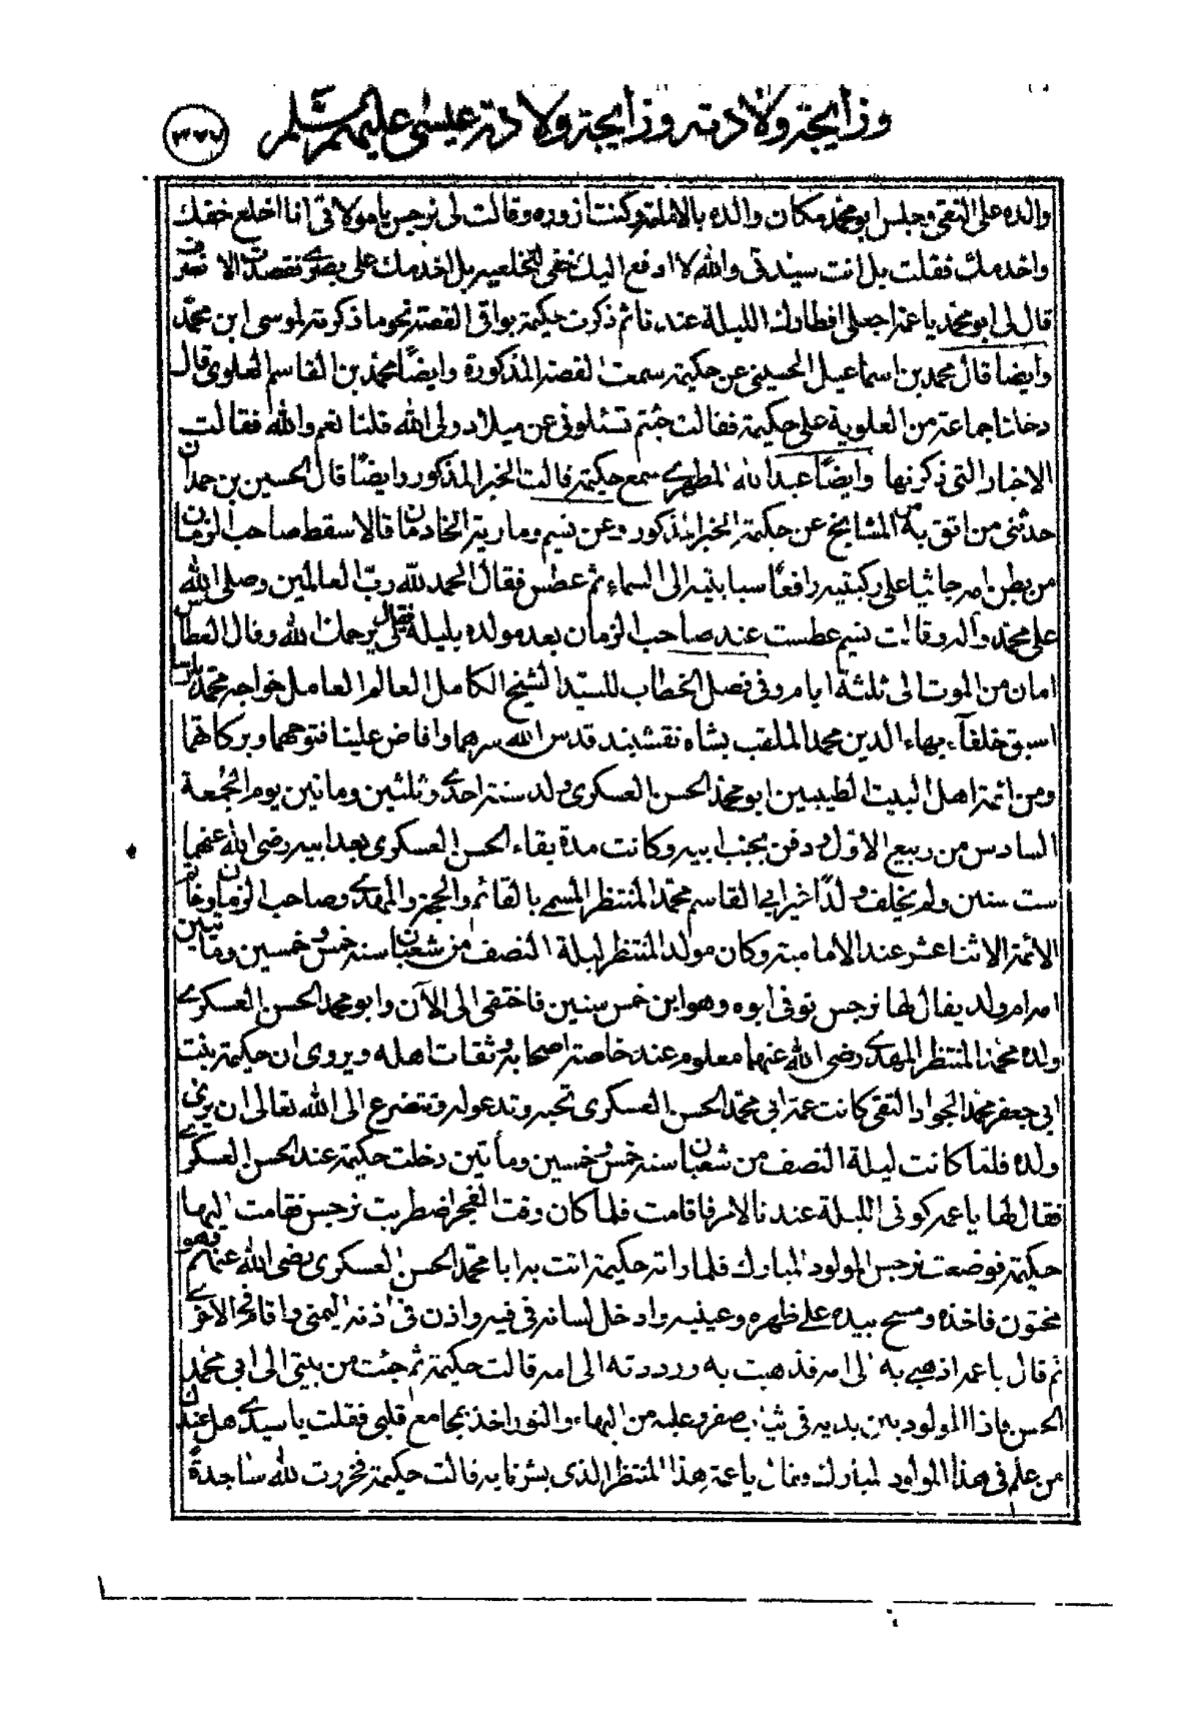 وزايجة ولادته وزايجة ولادته عيسى عليهم السلم
٣٨٧
والده على النقى وجلس ابو محمد مكان والده بالامامة وكنت ازوره وقالت لى نرجس يا مولاتى انا اخلع خفك
واخدمك فقلت بل انت سيدتى والله لا ادفع اليك خفى لتخلعيه بل اخدمك على بصرى فقصدت الانصراف
قال لى ابو محمد يا عمة اجعلى افطارك الليلة عندنا ثم ذكرت حكيمة بواقى القصة نحو ما ذكرته لموسى ابن محمد
وايضا قال محمد بن اسماعيل الحسينى عن حكيمة سمعت القصة المذكورة وايضًا محمد بن القاسم العلوى قال
دخلنا جماعة من العلوية على حكيمة فقالت جئتم تسئلونى عن ميلاد ولى الله قلنا نعم والله فقالت
الاخبار التى ذكرتها وايضًا عبد الله المطهرى سمع حكيمة قالت الخبر المذكور وايضًا قال الحسين بن حمدان
حدثنى من اثق به من المشايخ عن حكيمة الخبر المذكور وعن نسيم ومارية الخادمان قالا سقط صاحب الزمان
من بطن امه جاثيا على ركبتيه رافعًا سبابتيه الى السماء ثم عطس فقال الحمد لله ربّ العالمين وصلى الله
على محمد وآله وقالت نسيم عطست عند صاحب الزمان بعد مولده بليلة فقال يرحمك الله وقال العطاس
امان من الموت الى ثلثة ايام وفى فصل الخطاب للسيد الشيخ الكامل العالم العامل خواجه محمد پارسا
اسبق خلفآء بهاء الدين محمد الملقب بشاه نقشبند قدس الله سرهما وافاض علينا فتوحهما وبركاتهما
ومن ائمة اهل البيت الطيبين ابو محمد الحسن العسكرى ولد سنة احدى وثلثين ومائتين يوم الجُمعة
السادس من ربيع الاول ودفن بجنب ابيه وكانت مدة بقاء الحسن العسكرى بعد ابيه رضى الله عنهما
ست سنين ولم يخلف ولدًا غير ابى القاسم محمد المنتظر المسمى بالقائم والحجة والمهدى وصاحب الزمان وخاتم
الائمة الاثنا عشر عند الامامية وكان مولد المنتظر ليلة النصف من شعبان سنة خمس وخمسين ومأتين
امه ام ولد يقال لها نرجس توفى ابوه وهو ابن خمس سنين فاختفى الى الآن وابو محمد الحسن العسكرى
ولده محمد المنتظر المهدى رضى الله عنهما معلوم عند خاصة اصحابه وثقات اهله ويروى ان حكيمة بنت
ابى جعفر محمد الجواد التقى كانت عمة ابى محمد الحسن العسكرى تحبه وتدعو له وتتضرع الى الله تعالى ان يرى
ولده فلما كانت ليلة النصف من شعبان سنة خمس وخمسين ومأتين دخلت حكيمة عند الحسن العسكرى
فقال لها يا عمه كونى الليلة عندنا لامر فاقامت فلما كان وقت الفجر اضطربت نرجس فقامت اليها
حكيمة فوضعت نرجس المولود المبارك فلما راته حكيمة اتت به ابا محمد الحسن العسكرى رضى الله عنهم وهو
مختون فاخذه ومسح بيده على ظهره وعينيه وادخل لسانه فى فيه واذن فى اذنه اليمنى واقام فى الاخرى
ثم قال يا عمه اذهبى به الى امه فذهبت به ورددته الى امه قالت حكيمة ثم جئت من بيتى الى ابى محمد
الحسن فاذا المولود بين يديه فى ثياب صفر وعليه من البهاء والنور اخذ بمجامع قلبى فقلت يا سيدى هل عندك
من علم فى هذا المولود المبارك فقال يا عمة هذا المنتظر الذى بشرنا به قالت حكيمة فخررت لله ساجدةً